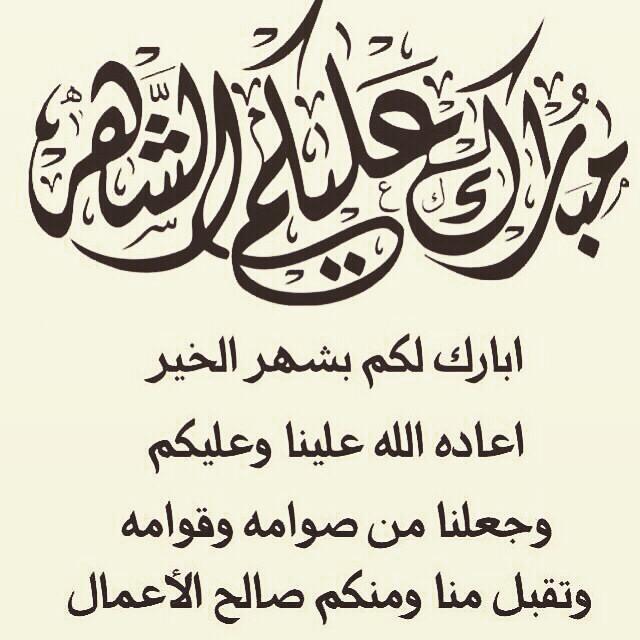 مبارك عليكم الشهر
ابارك لكم بشهر الخير
اعاده الله علينا وعليكم
وجعلنا من صوامه وقوامه
وتقبل منا ومنكم صالح الأعمال